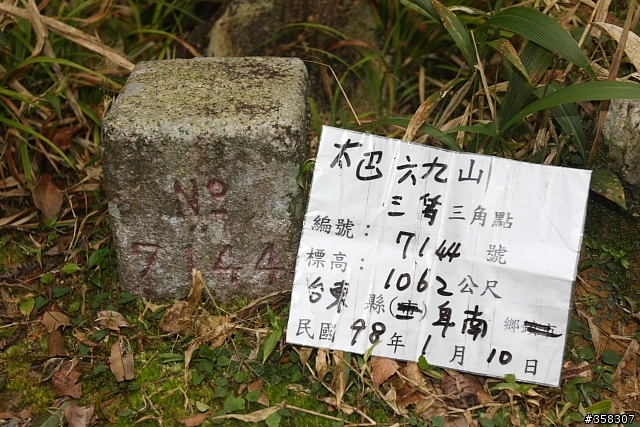 No
7144
太巴六九山
三等三角點
編號：7144號
標高：1062公尺
台東縣(市)卑南鄉鎮市
民國98年1月10日
#358307